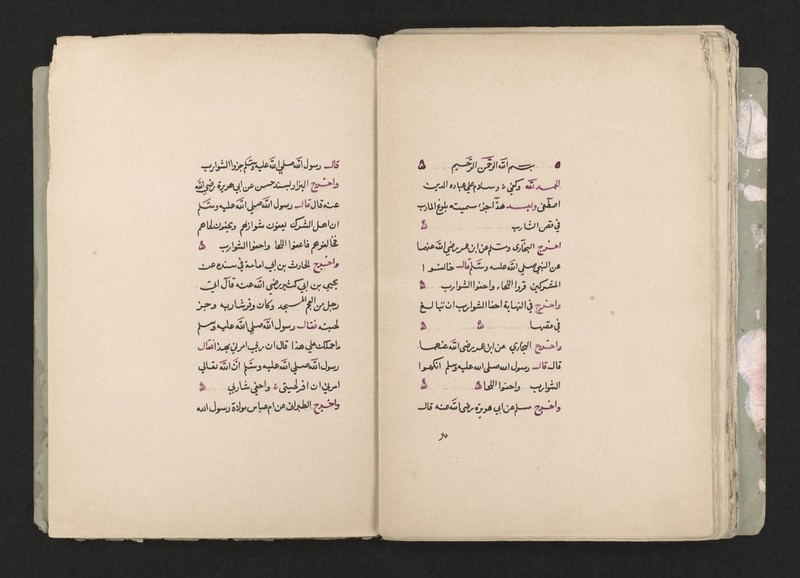 بسم الله الرحمن الرحيم
الحمد لله وكفى وسلام على عباده الذين
اصطفى وبعد هذا جزء سميته بلوغ المارب
في قص الشارب
اخرج البخاري ومسلم عن ابن عمر رضي الله عنهما
عن النبي صلى الله عليه وسلم قال خالفوا ا
المشركين وفروا اللحاء واحفوا الشوارب
واخرج في النهاية احفا الشوارب ان تبالغ
في قصها
واخرج البخاري عن ابن عمر رضي الله عنهما
قال قال رسول الله صلى الله عليه وسلم انهكوا
الشوارب واحفوا اللحا
واخرج مسلم عن ابي هريرة رضي الله عنه قال
قال رسول الله صلى الله عليه وسلم جزوا الشوارب
واخرج البزار بسند حسن عن ابي هريرة رضي الله
عنه قال قال رسول الله صلى الله عليه وسلم
ان اهل الشرك يعفون شواربهم ويحفون لحاهم
فخالفوهم فاعفوا اللحا واحفوا الشوارب
واخرج الحارث بن ابي اسامة في سنده عن
يحيى بن ابي كثير رضي الله عنه قال اتى
رجل من العجم المسجد وكان وفر شاربه وجز
لحيته فقال رسول الله صلى الله عليه وسلم
ما حملك على هذا قال ان ربي امرني بهذا فقال
رسول الله صلى الله عليه وسلم ان الله تعالى
امرني ان اوفر لحيتى واحفى شاربي
واخرج الطبراني عن ام عياش مولاة رسول الله